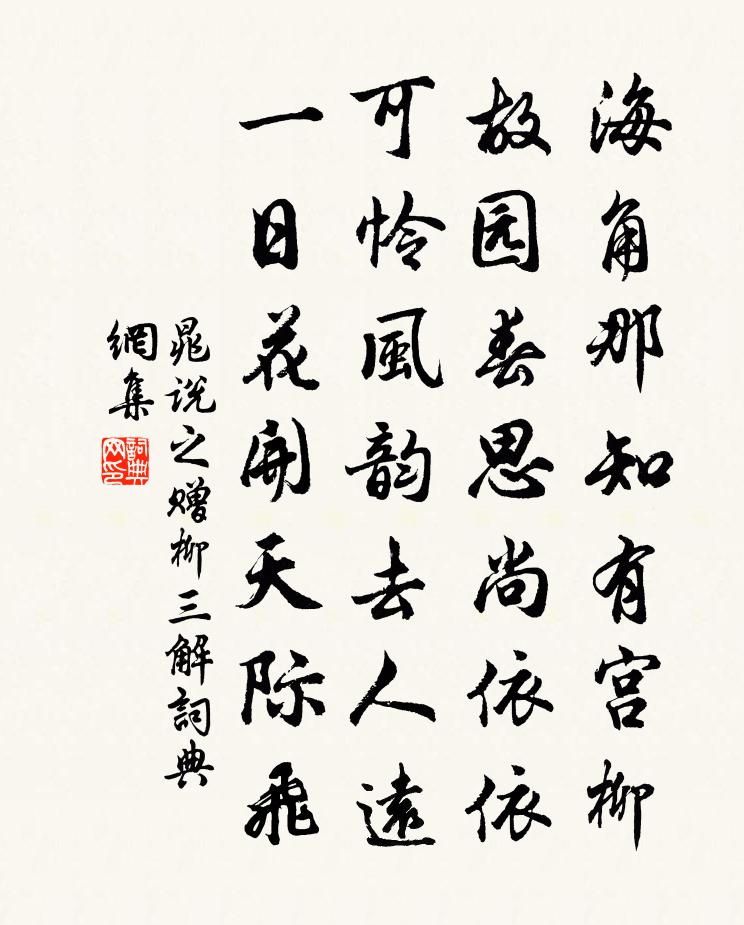 海角那知有宫柳
故园春思尚依依
可怜風韵去人遠
一日花開天际飛
晁说之赠柳三解詞典
網集
詞典网印